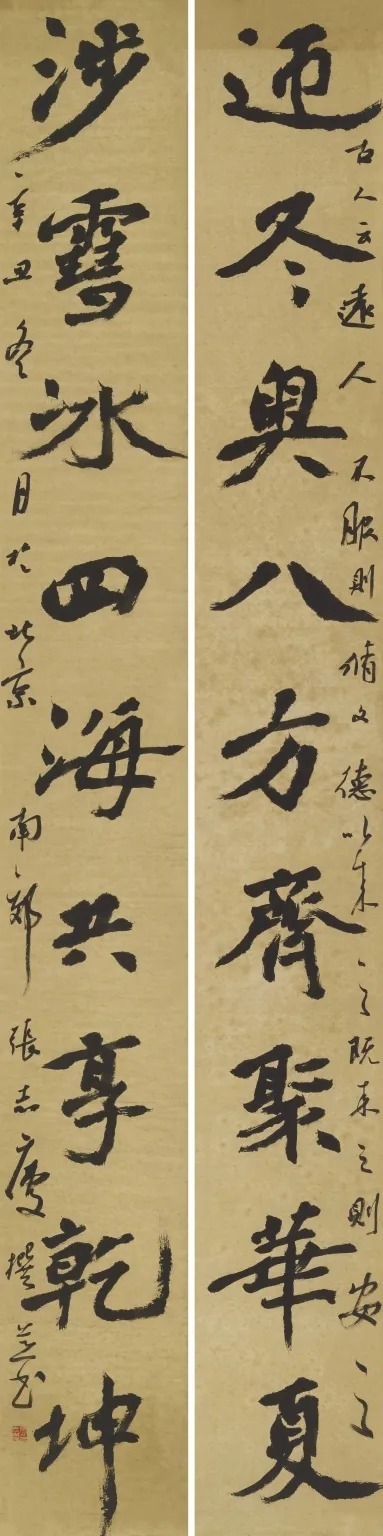 迎冬奥八方齊聚華夏
古人云遠人不服則脩文德以来之既来之則安之
涉雪冰四海共享乾坤
辛丑冬月於北京南鄭張志慶撰並書